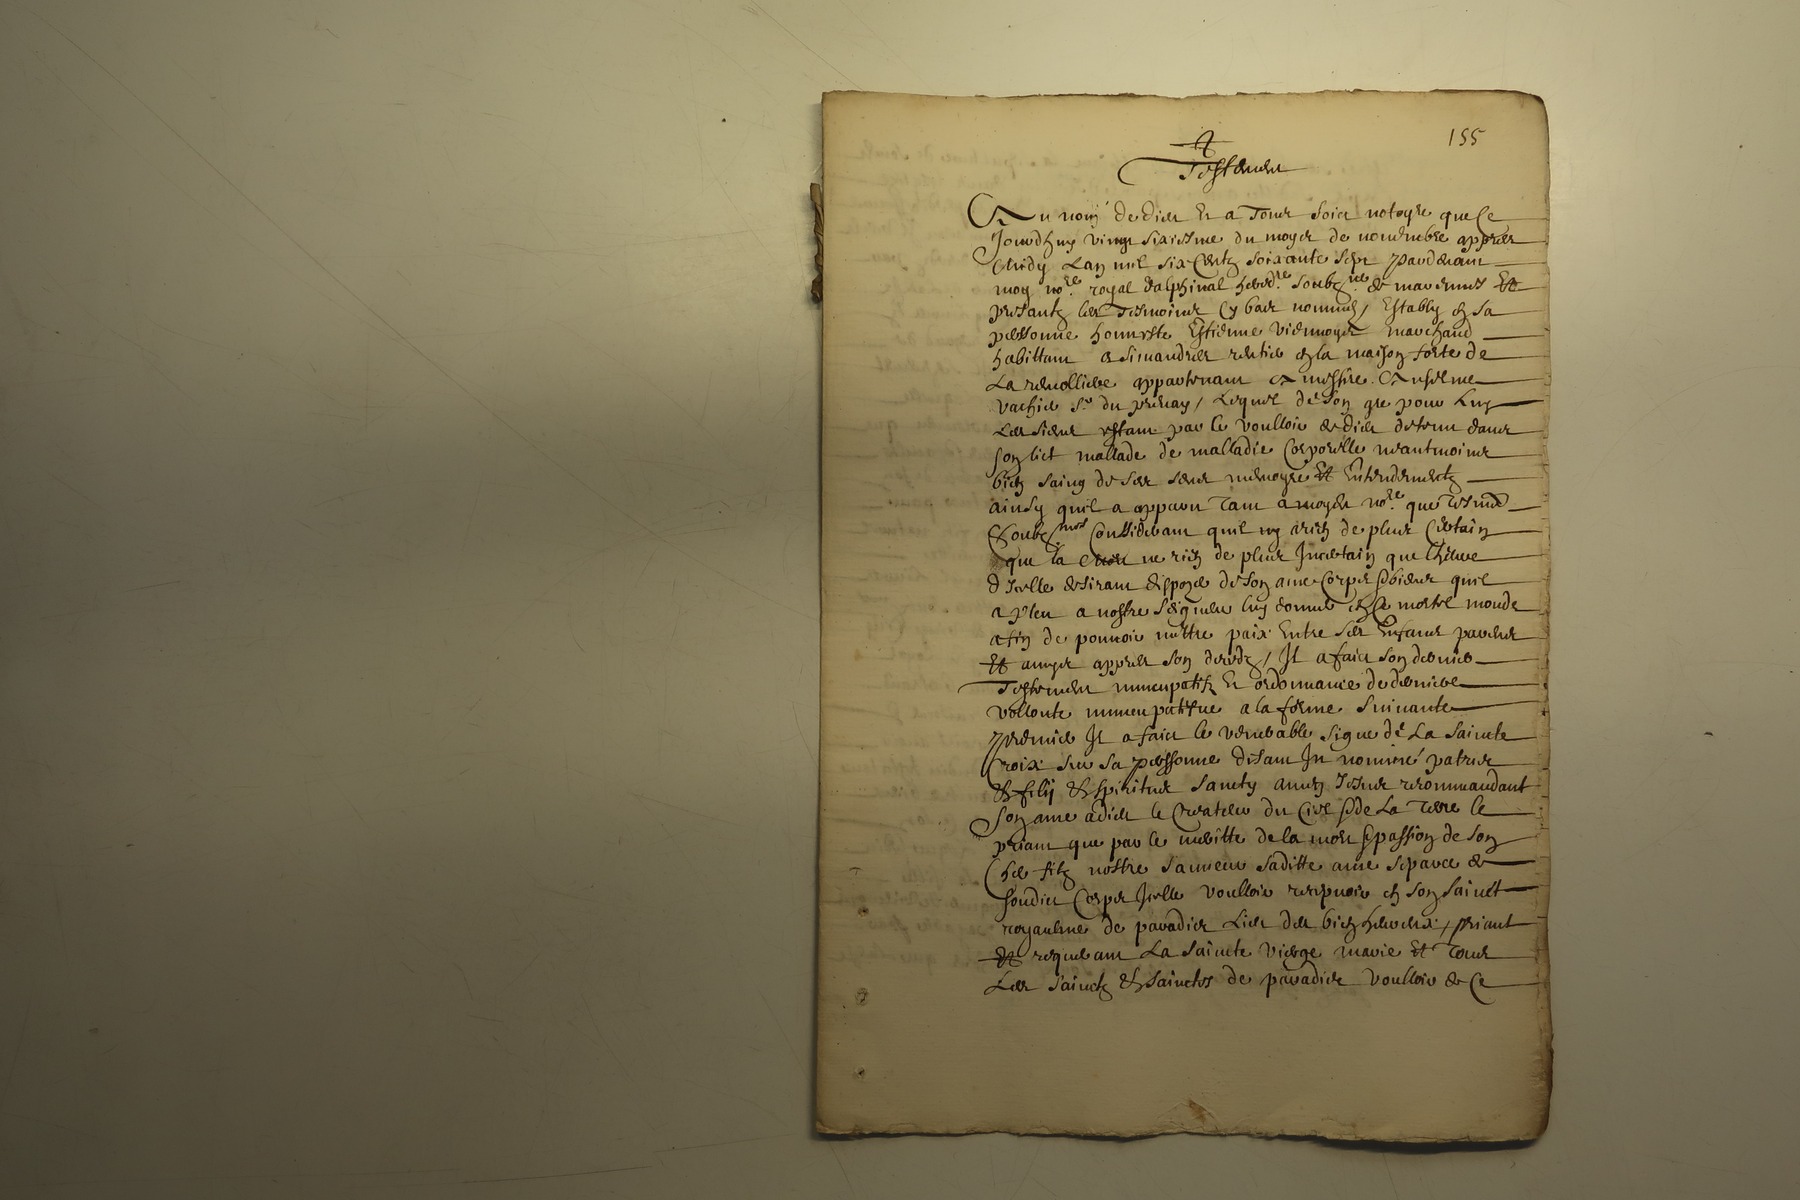 155
Testement
Au nom de dieu Et a Tous soict notoyre que Ce
Jourdhuy vingt sixiesme du moys de novembre appres
midy Lan mil six Centz soixante sept pardevant
moy no.re royal dalphinal hered.re soubz.né & mariennes Et
presantz les Tesmoings Cy bas nommés / Estably en sa
personne honneste Estienne viennoys marchand
habittant a Simandres rentier en la maison forte de
La appartenant A messire Anselme
vachier s.r du / Lequel de son gre pour Luy
Les siens estant par le voulloir de dieu detenu dans
son lict mallade de malladie Corporelle neantmoings
bien saing de ses sens memoyre Et Entendementz
ainsy quil a apparu Tant a moydit no.re que Tesmoings
Soubz.nés Considerant quil ny a rien de plus Certain
que la mort ne rien de plus Incertain que Lheure
dIcelle desirant dispozer de son ame Corps & biens quil
a pleu a nostre seigneur luy donner en Ce mortel monde
afin de pouvoir mettre paix Entre ses Enfans parens
Et amys appres son decedz / Il a faict son dernier
Testement nuncupatif Et ordonnance de derniere
vollonte nuncupatifve a la forme suivante
premier Il a faict le venerable signe de La saincte
Croix sur sa personne disant In nomine patris
& filij & spiritus sancty amen Jesus recommandant
son ame a dieu le Createur du Ciel & de La Terre le
priant que par le meritte de la mort & passion de son
Cher filz nostre sauveur saditte ame separee de
sondict Corps Icelle voulloir recepvoir en son sainct
royaulme de paradis Lieu des bien heureux / priant
Et requerant La saincte vierge marie Et Tous
Les sainctz & sainctes de paradis voulloir de Ce